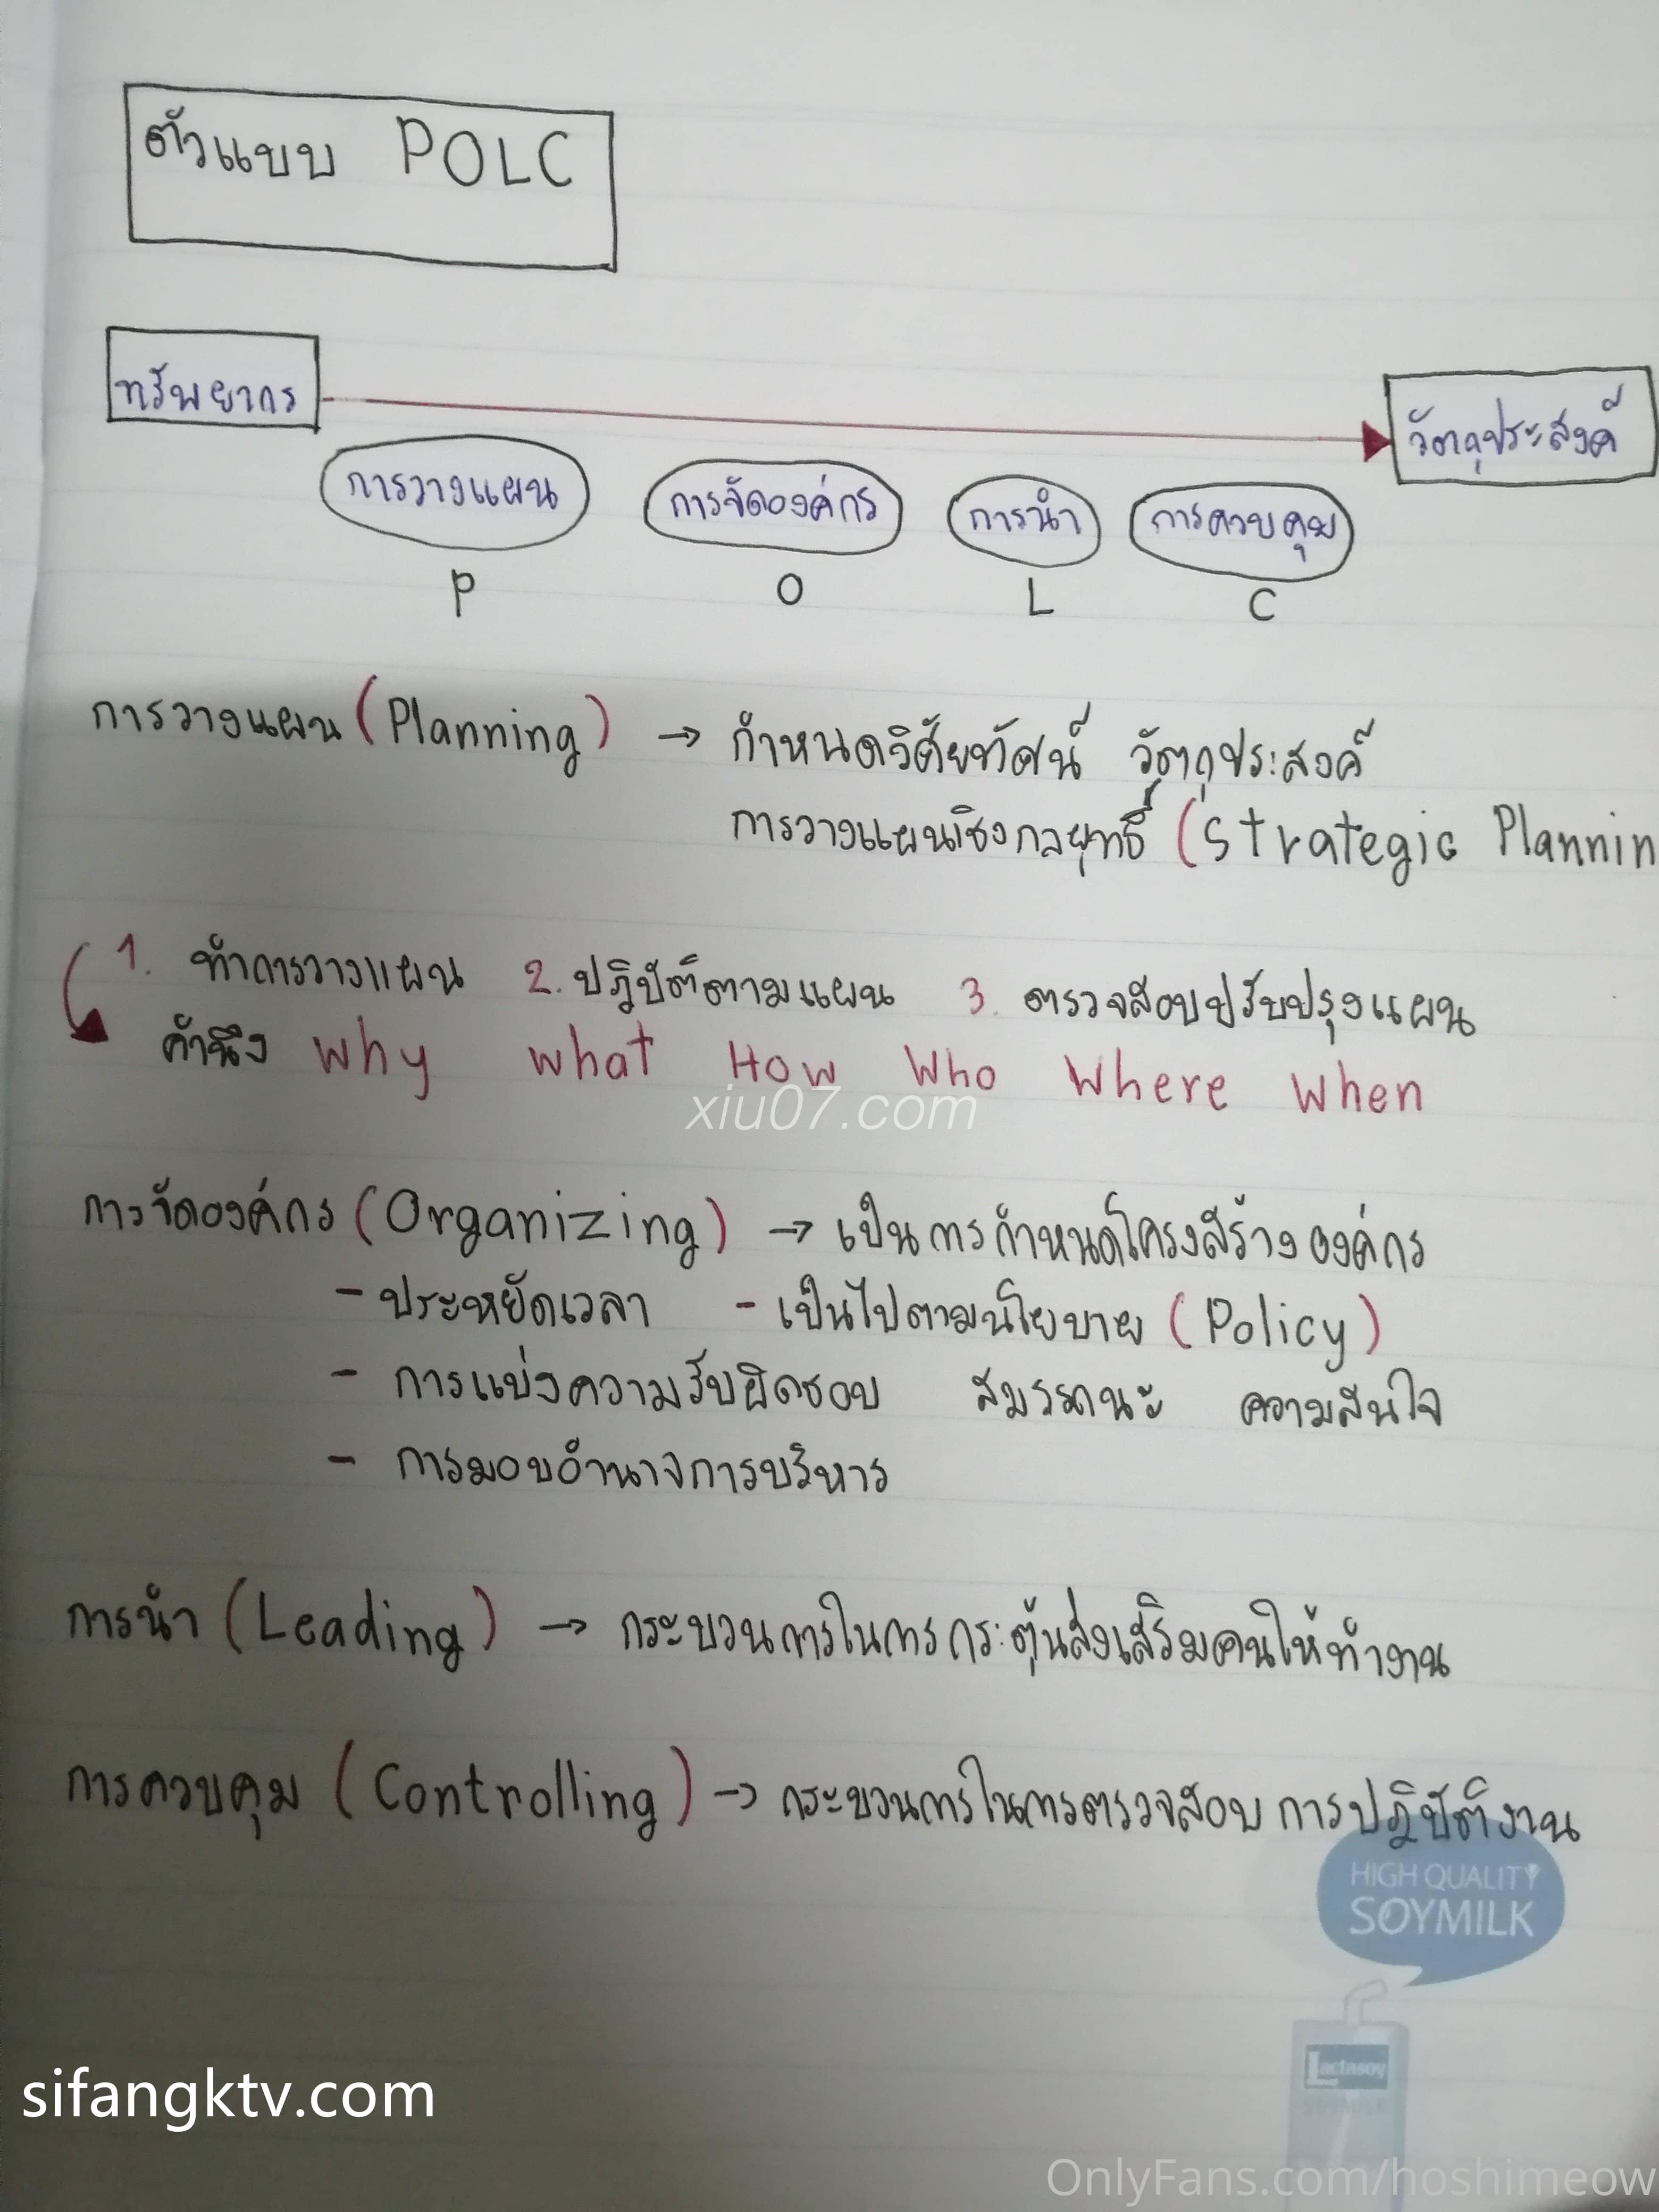 ตัวแบบ POLC
ทรัพยากร
วัตถุประสงค์
การวางแผน การจัดองค์กร การนำ การควบคุม
P O L C
การวางแผน (Planning) → กำหนดวิสัยทัศน์ วัตถุประสงค์
การวางแผนเชิงกลยุทธ์ (Strategic Plannin
1. ทำการวางแผน 2. ปฏิบัติตามแผน 3. ตรวจสอบปรับปรุงแผน
คำนึง Why What How Who Where When
xiu07.com
การจัดองค์กร (Organizing) → เป็นการกำหนดโครงสร้างองค์กร
- ประหยัดเวลา - เป็นไปตามนโยบาย (Policy)
- การแบ่งความรับผิดชอบ สมรรถนะ ความสนใจ
- การมอบอำนาจการบริหาร
การนำ (Leading) → กระบวนการในการกระตุ้นส่งเสริมคนให้ทำงาน
การควบคุม (Controlling) → กระบวนการในการตรวจสอบการปฏิบัติงาน
HIGH QUALITY
SOYMILK
Lactasoy
SOYMILK
sifangktv.com
OnlyFans.com/hoshimeow